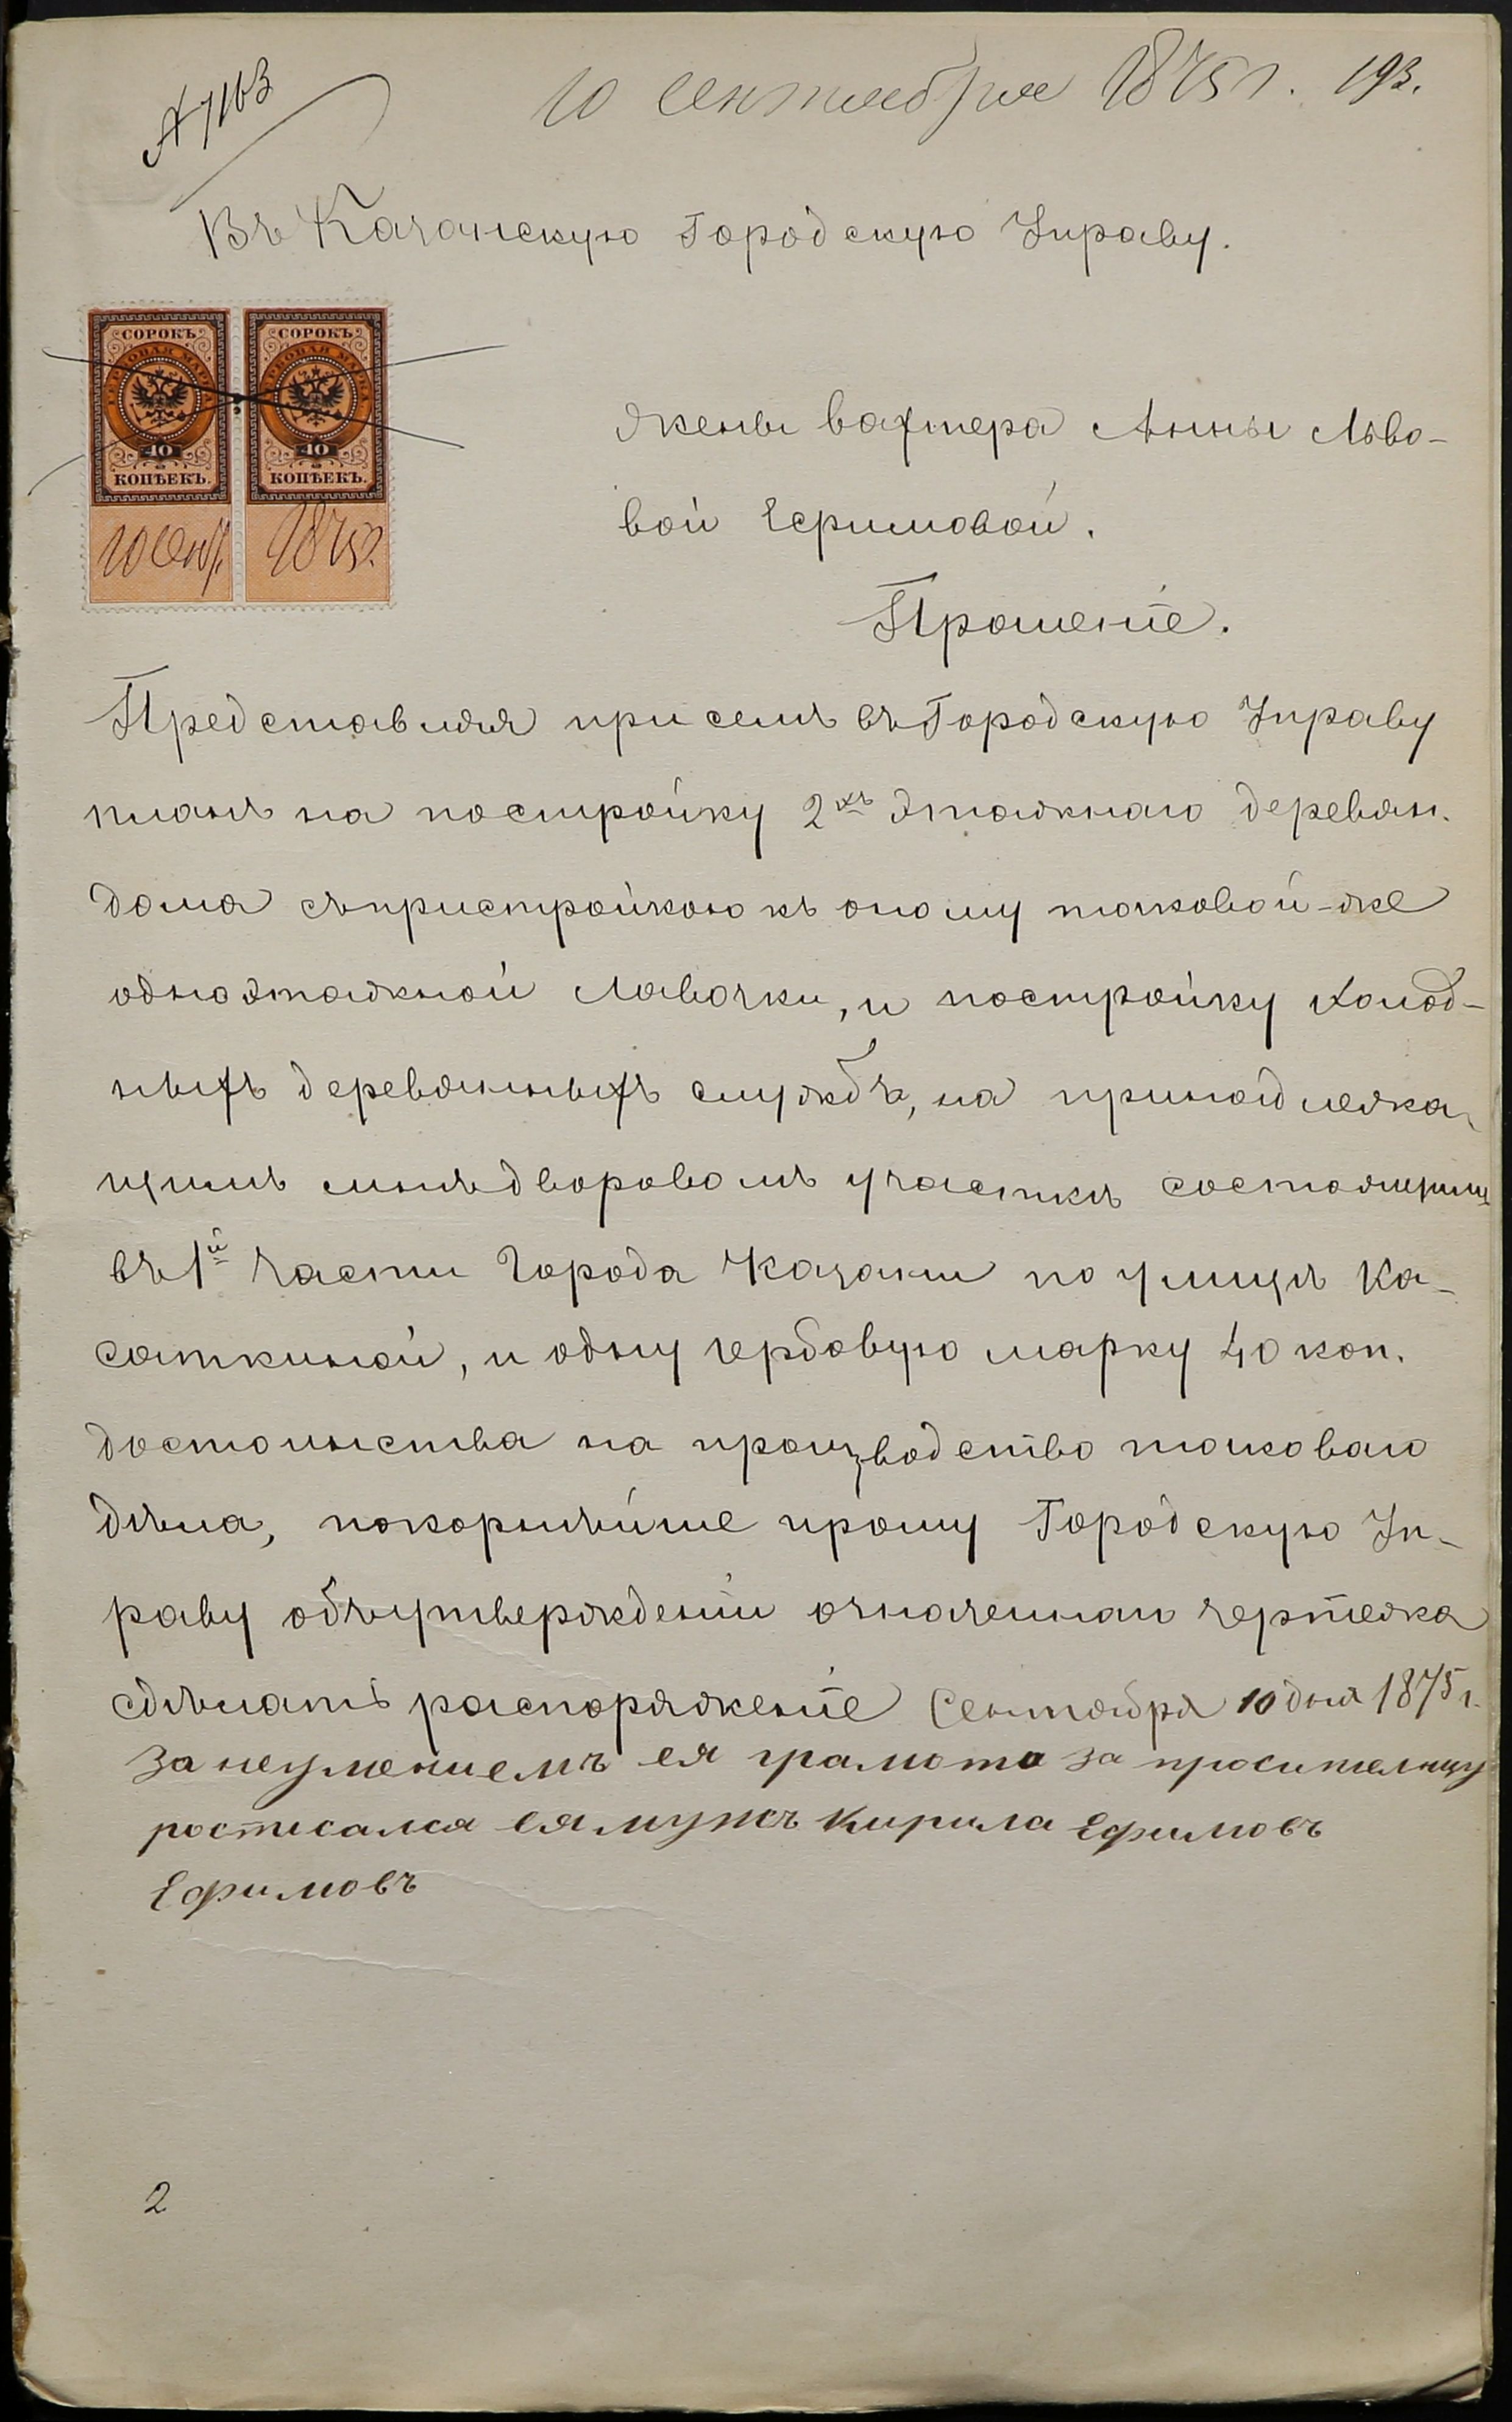 № 7163
10 Сентября 1875 г. 193.
Въ Казанскую Городскую Управу.
СОРОКЪ СОРОКЪ
ГЕРБОВАЯ МАРКА ГЕРБОВАЯ МАРКА
40 40
КОПѢЕКЪ. КОПѢЕКЪ.
10 Сент. 1875 г.
Жены вахтера Анны Льво-
вой
Прошеніе.
Представляя при семъ въ Городскую Управу
планъ на постройку 2хъ этажнаго деревян.
дома съ пристройкою къ оному таковой-же
одноэтажной лавочки, и постройку холод-
ныхъ деревянныхъ службъ, на принадлежа-
щимъ мнѣ дворовомъ участкѣ состоящимъ
въ 1й части Города Казани по улицѣ Ка-
саткиной, и одну гербовую марку 40 коп.
достоинства на производство таковаго
дѣла, покорнѣйше прошу Городскую Уп-
раву объ утвержденіи означеннаго чертежа
сдѣлать распоряженіе Сентября 10 дня 1875 г.
За неумениемъ ея грамота за просителницу
росписался ея мужъ Кирила Ефимовъ
Ефимовъ
2